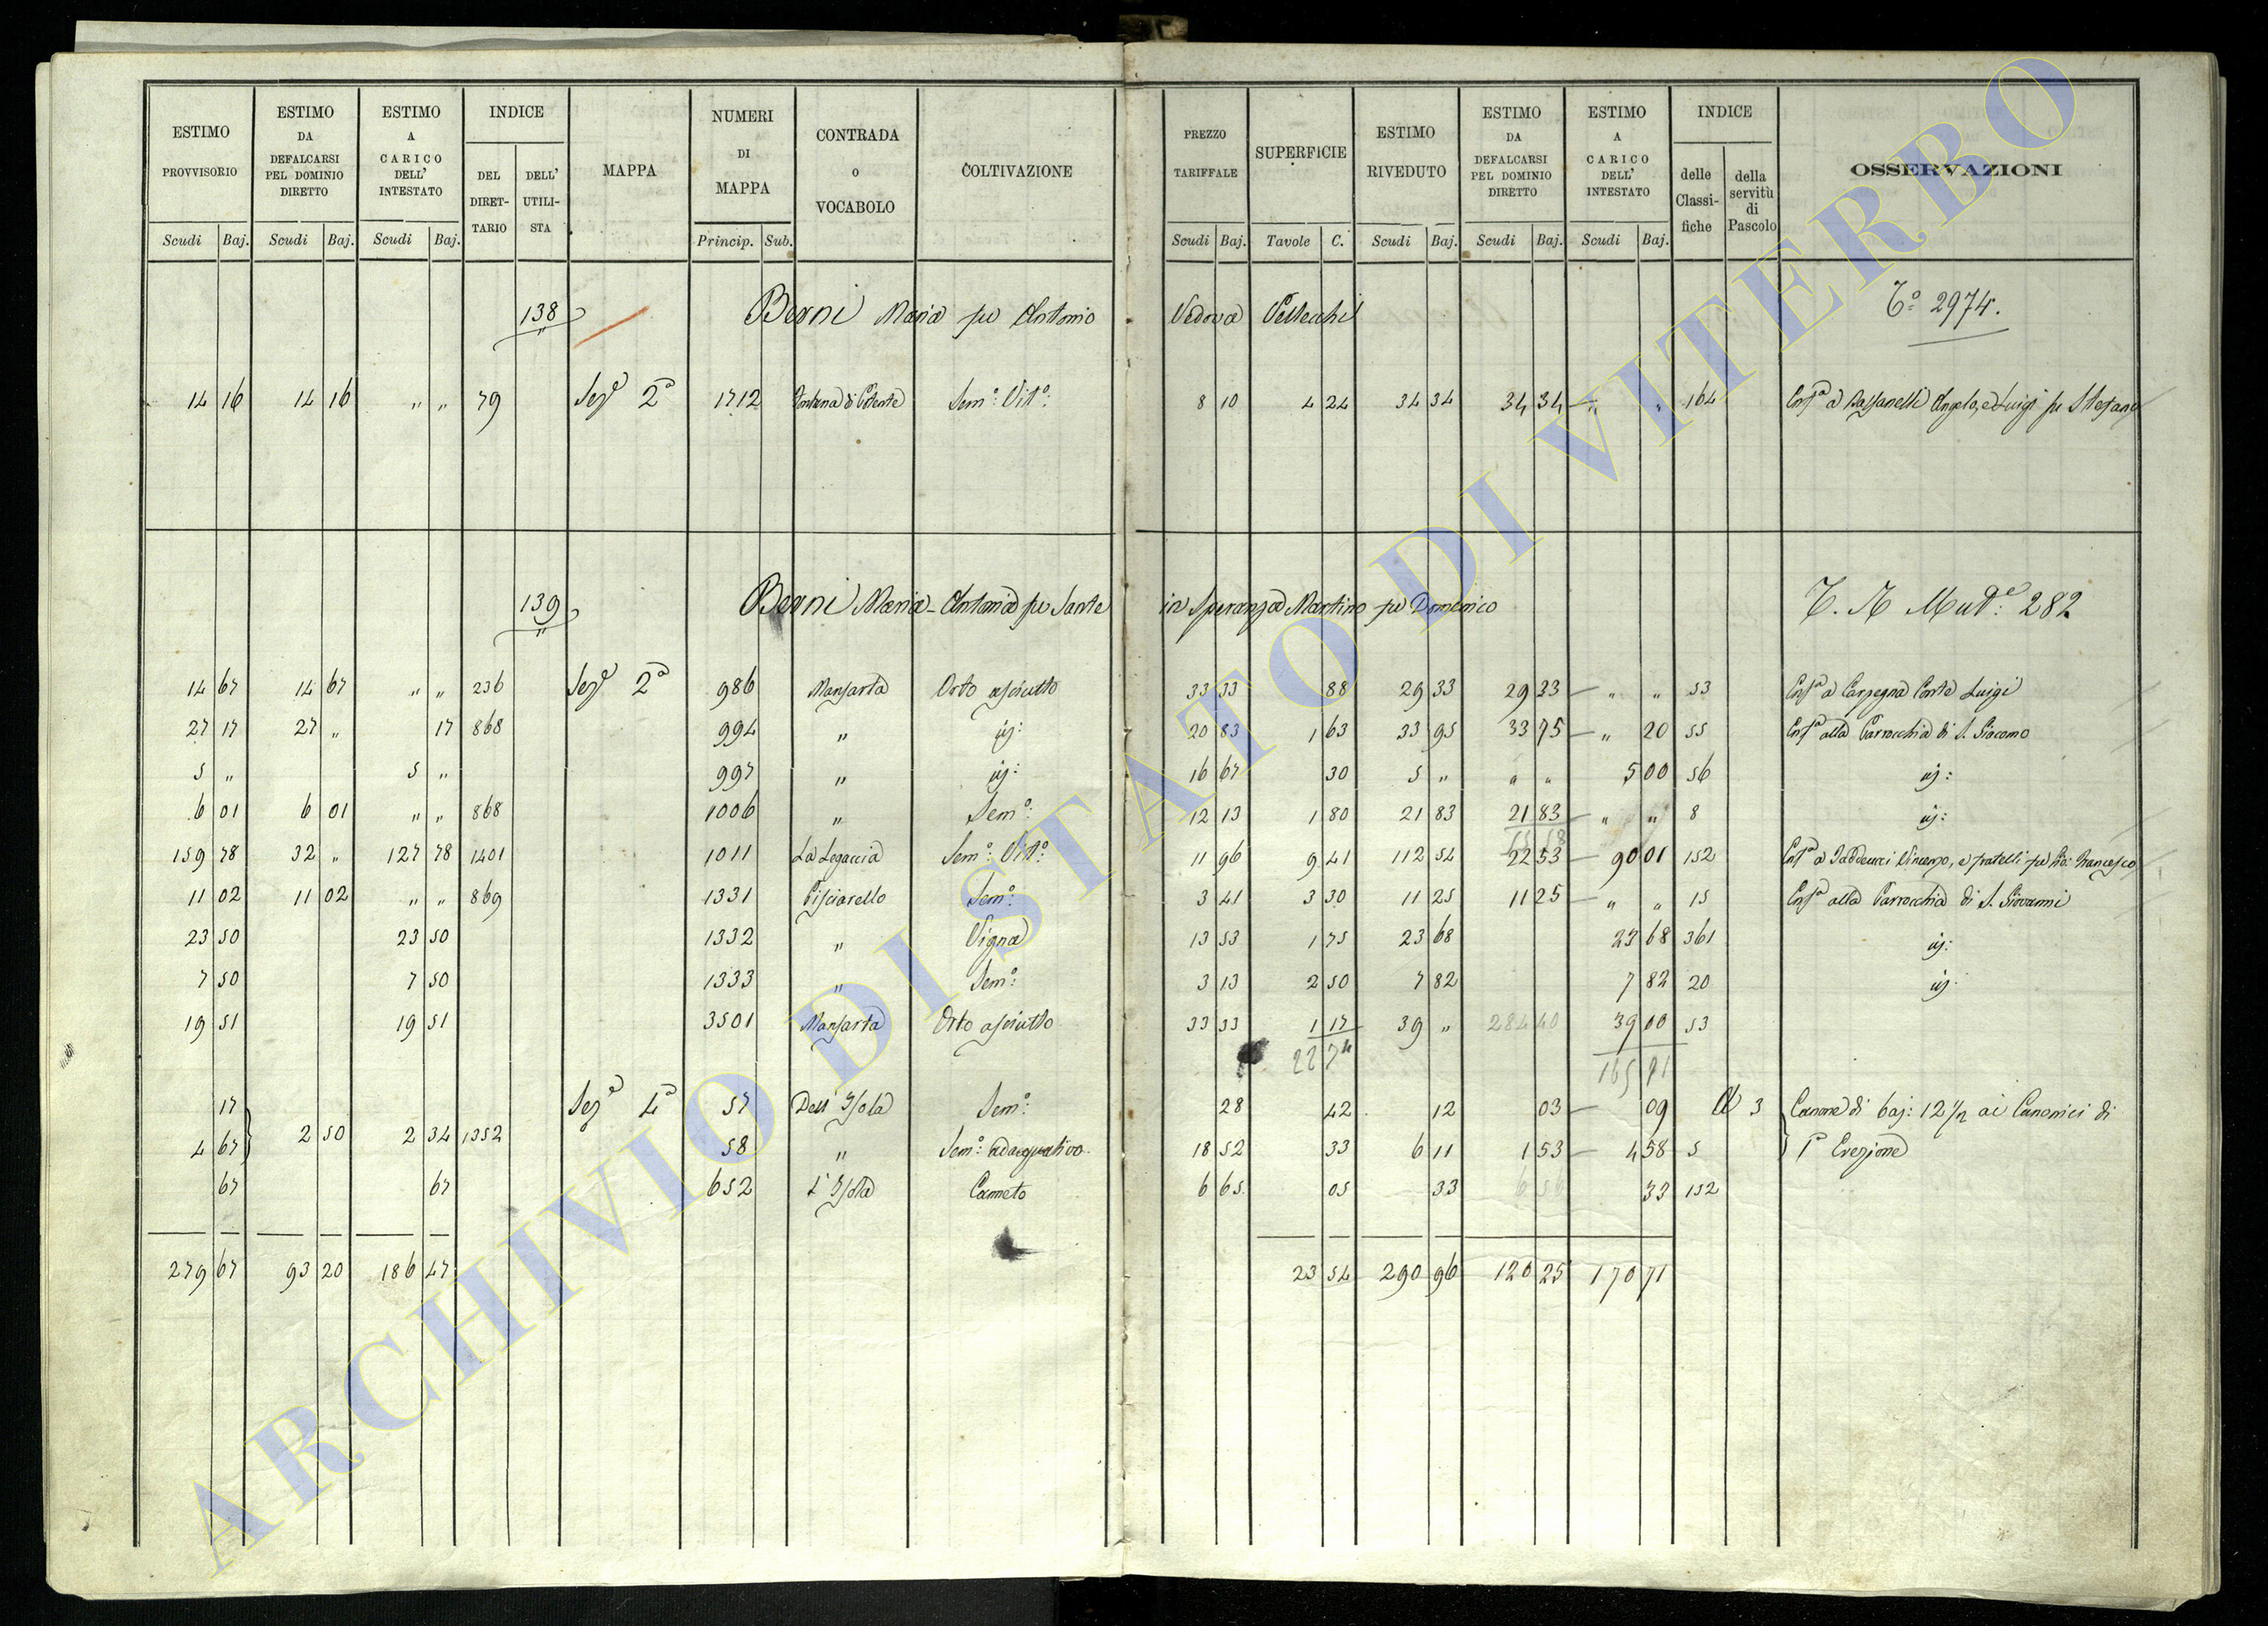 ESTIMO PROVVISORIO Scudi Baj. ESTIMO DA DEFALCARSI PEL DOMINIO DIRETTO Scudi Baj. ESTIMO A CARICO DELL' INTESTATO Scudi Baj. INDICE DEL DIRETTARIO DELL' UTILISTA MAPPA NUMERI DI MAPPA Princip. Sub. CONTRADA O VOCABOLO COLTIVAZIONE PREZZO TARIFFALE Scudi Baj. SUPERFICIE Tavole C. ESTIMO RIVEDUTO Scudi Baj. ESTIMO DA DEFALCARSI PEL DOMINIO DIRETTO Scudi Baj. ESTIMO A CARICO DELL' INTESTATO Scudi Baj. INDICE delle Classifiche della servitù di Pascolo OSSERVAZIONI
138 Berni Maria fu Antonio Vedova Pellecchi T.º 2974.
14 16 14 16 " " 79 Sezᵉ 2ª 1712 Sem:º Vit:º 8 10 4 24 34 34 34 34 — " " 164 Enfª a Passanelli Angelo, e Luigi fu Stefano
139 Berni Maria-Antonia fu Sante in Speranza Martino fu Domenico T. N Mutᵉ: 282
14 67 14 67 " " 236 Sezᵉ 2ª 986 Mansarta Orto asciutto 33 33 88 29 33 29 33 — " " 53 Enfª a Carpegna Conte Luigi
27 17 27 " 17 868 994 " id: 20 83 1 63 33 95 33 75 — " 20 55 Enfª alla Parrocchia di S. Giacomo
5 " 5 " 997 " id: 16 67 30 5 " " " 5 00 56 id:
6 01 6 01 " " 868 1006 " Sem:º 12 13 1 80 21 83 21 83 — " " 8 id:
159 78 32 " 127 78 1401 1011 La Legaccia Sem:º Vit:º 11 96 9 41 112 54 22 53 — 90 01 152 Enfª a Taddeucci Vincenzo, e fratelli fu Gio: Francesco
11 02 11 02 " " 869 1331 Pisciarello Sem:º 3 41 3 30 11 25 11 25 — " " 15 Enfª alla Parrocchia di S. Giovanni
23 50 23 50 1332 " Vigna 13 53 1 75 23 68 23 68 361 id:
7 50 7 50 1333 " Sem:º 3 13 2 50 7 82 7 82 20 id:
19 51 19 51 3501 Mansarta Orto asciutto 33 33 1 17 39 " 284 40 39 00 53
22 74
17 Sezᵉ 4ª 57 Dell' Isola Sem:º 28 42 12 03 — 09 A 3 Canone di baj: 12 1/2 ai Canonici di
4 67 2 50 2 34 1352 58 " Sem:º adacquativo 18 52 33 6 11 1 53 — 4 58 5 1ª Erezione
67 67 652 L'Isola Canneto 6 65 05 33 33 152
279 67 93 20 186 47 23 54 290 96 120 25 170 71
ARCHIVIO DI STATO DI VITERBO